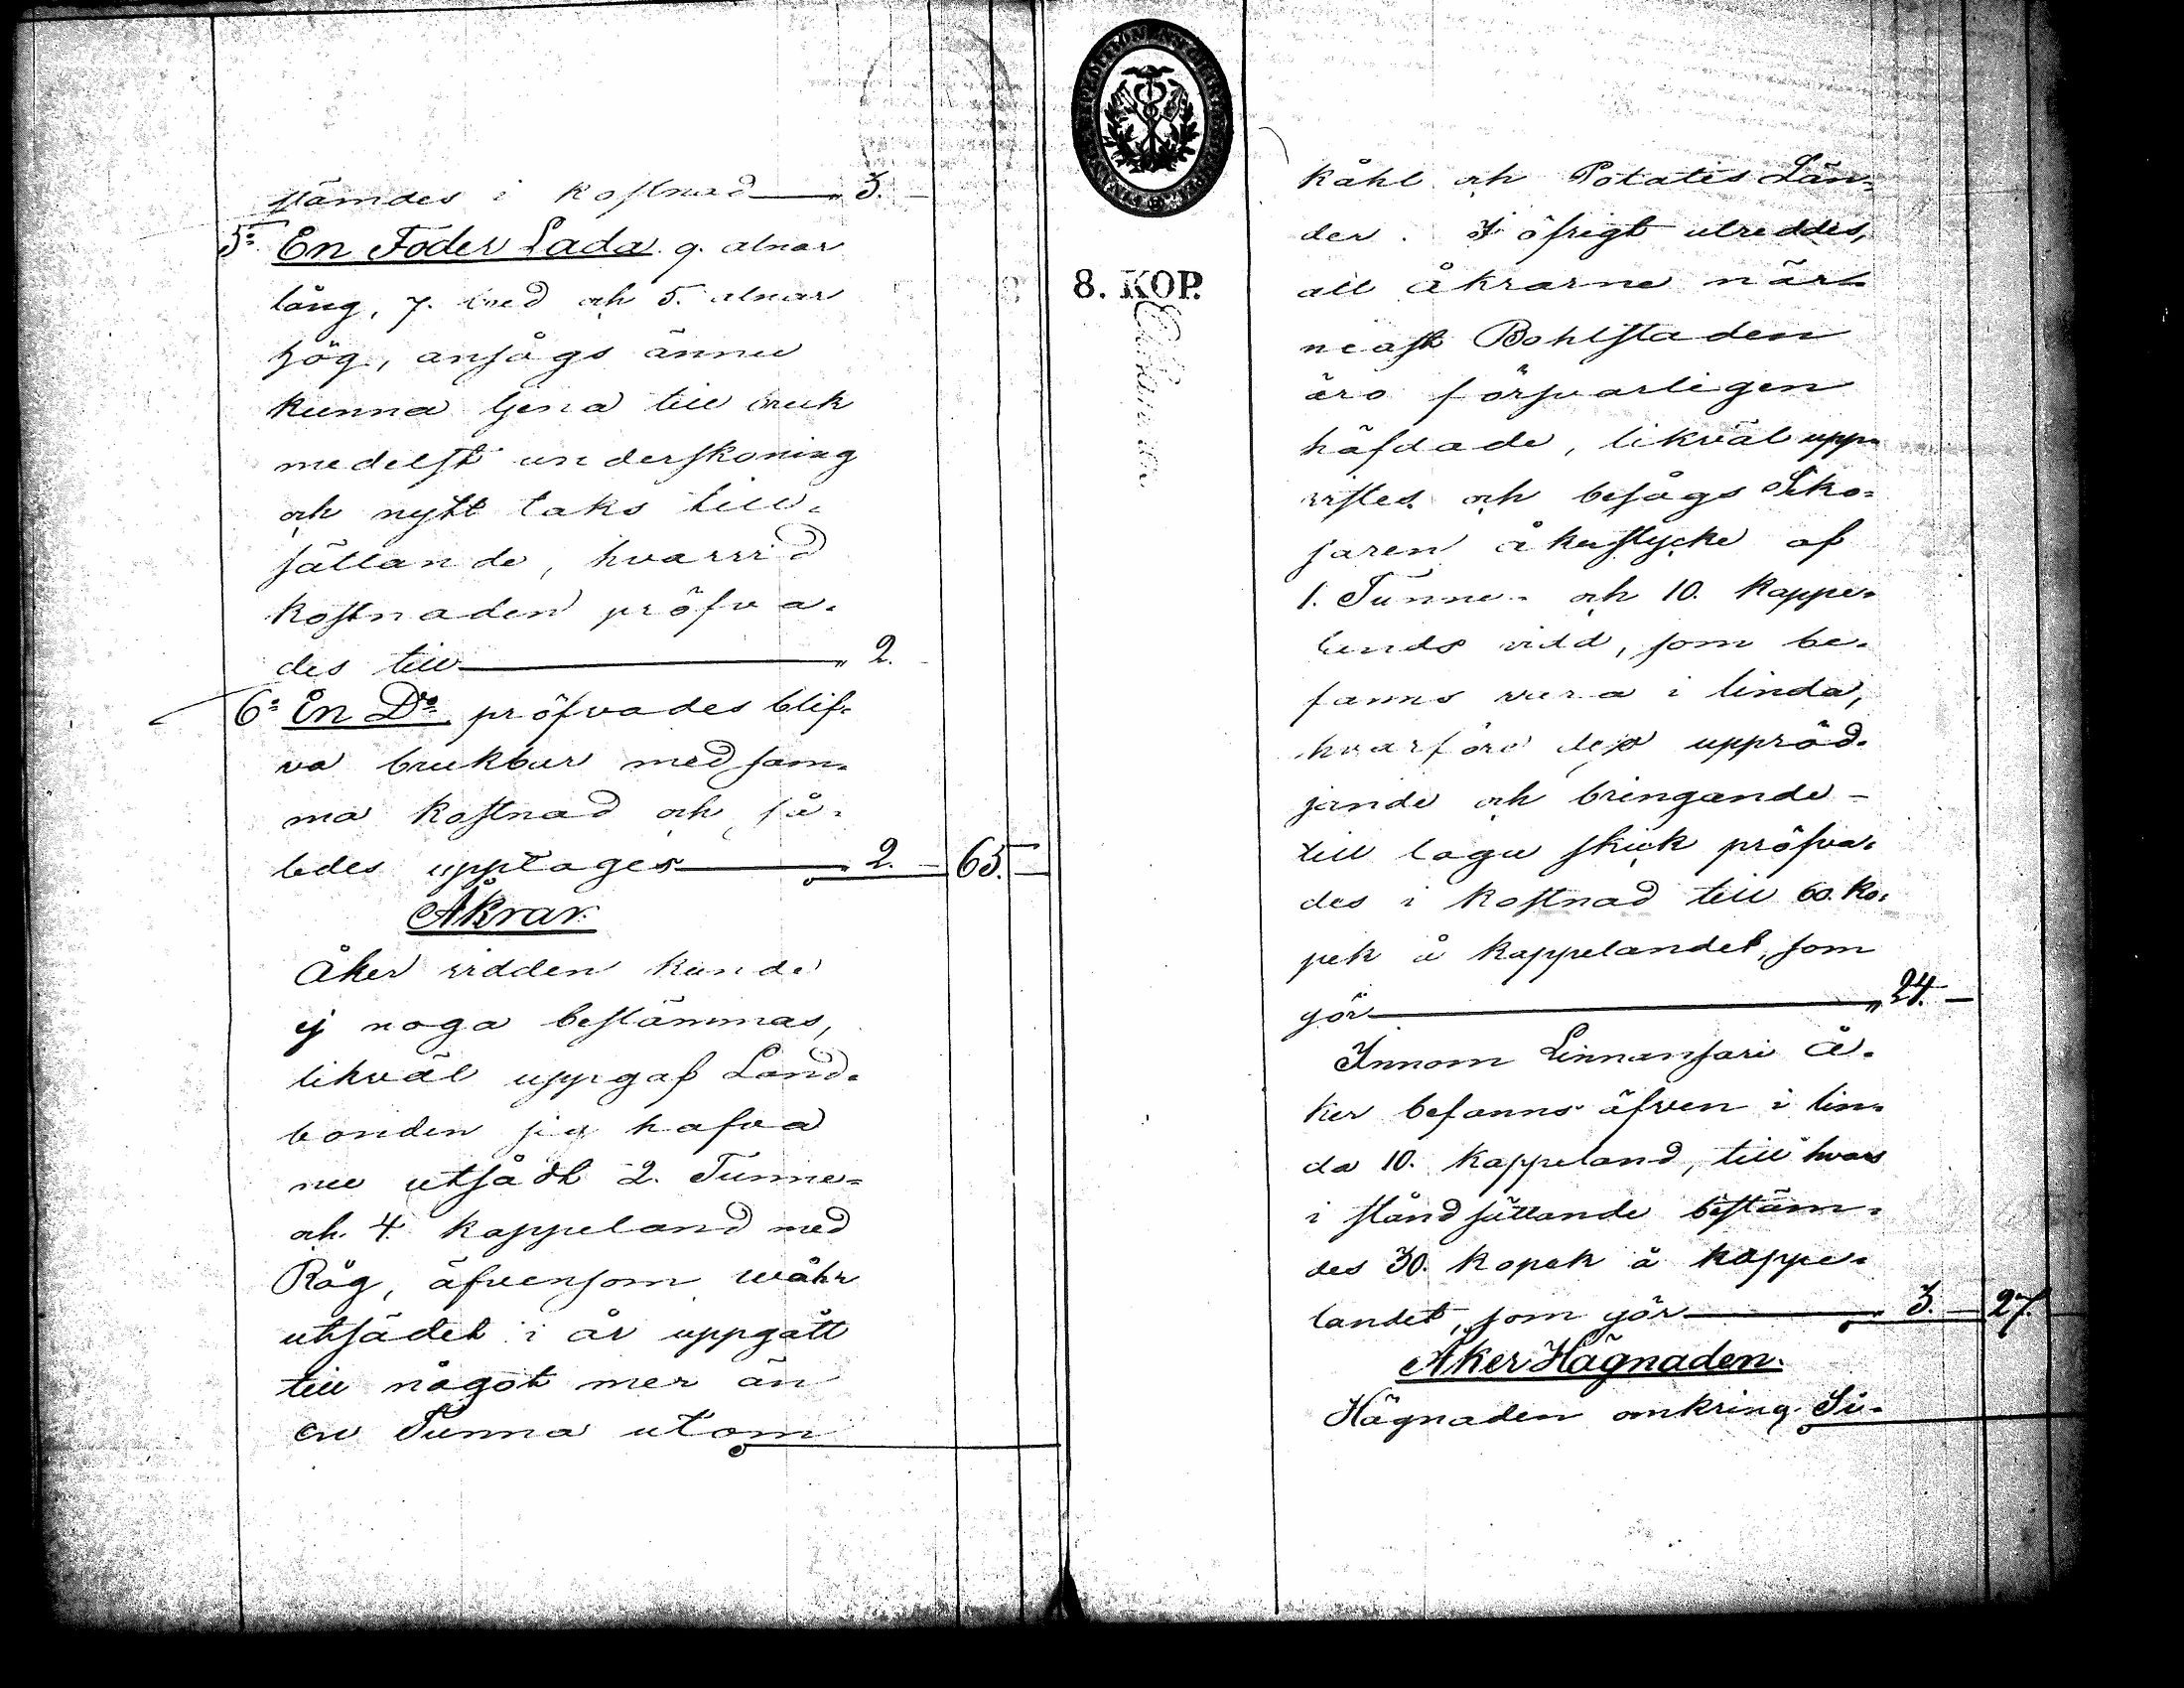 stämdes i kostnad — " 3. —
5:o En Foder Lada 9. alnar
lång, 7. bred och 5. alnar
hög, ansågs ännu
kunna tjena till bruk
medelst underskoning
och nytt taks till-
sättande, hvarvid
kostnaden pröfva-
des till — " 2. —
6:o En D:o pröfvades blif-
va brukbar med sam-
ma kostnad och så-
ledes upptages — " 2. — 65. —
Åkrar.
Åker vidden kunde
ej noga bestämmas,
likväl uppgaf Land-
bonden sig hafva
nu utsådt 2. Tunne-
och 4. kappeland med
Råg, äfvensom wåhr
utsädet i år uppgått
till något mer än
en Tunna utom
8. KOP.
kåhl och Potates Län-
der. I öfrigt utreddes,
att åkrarne när-
mast Bohlstaden
äro försvarligen
häfdade, likväl upp-
vistes och besågs
saren åkerstycke af
1. Tunne- och 10. kappe-
lands vidd, som be-
fanns vara i linda,
hvarföre dess uppröd-
jande och bringande
till laga skick pröfva-
des i kostnad till 60. Ko-
pek å kappelandet, som
gör — " 24. —
Innom Linnansari å-
ker befanns äfven i lin-
da 10. kappeland, till hvars
i ståndsättande bestäm-
des 30. kopek å kappe-
landet, som gör — " 3. — 27.
Åker Hägnaden.
Hägnaden omkring